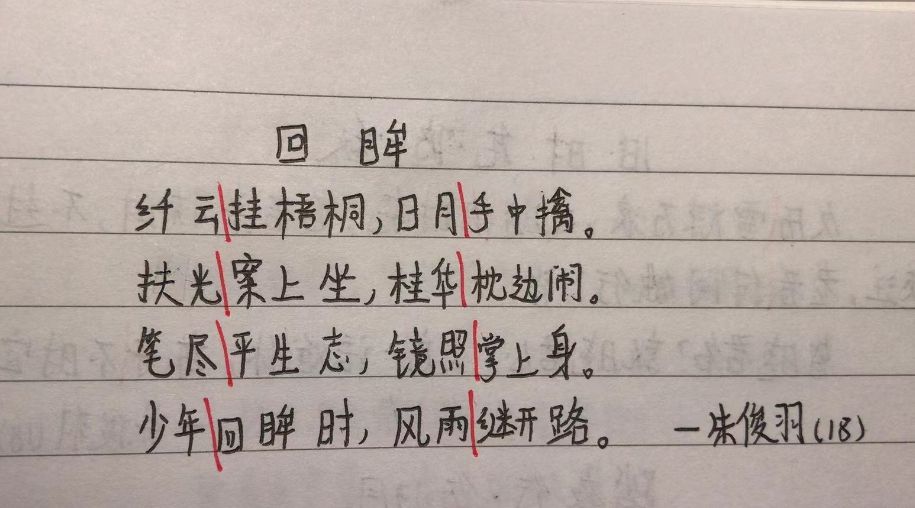 回眸
纤云挂梧桐,日月手中擒。
扶光案上坐,桂华枕边闹。
笔尽平生志,镜照掌上身。
少年回眸时,风雨继开路。 —朱俊羽(18)